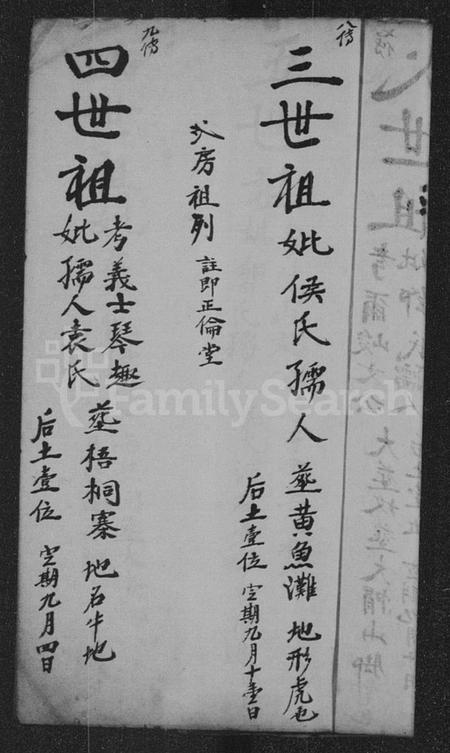 八傳
三世祖妣侯氏孺人
葬黄魚灘 地形虎
后土壹位 定期九月十壹日
弍房祖列 註即正倫堂
九傳
四世祖
考義士琴趣
妣孺人袁氏
葬梧桐寨 地名牛地
后土壹位 定期九月四日
FamilySearch